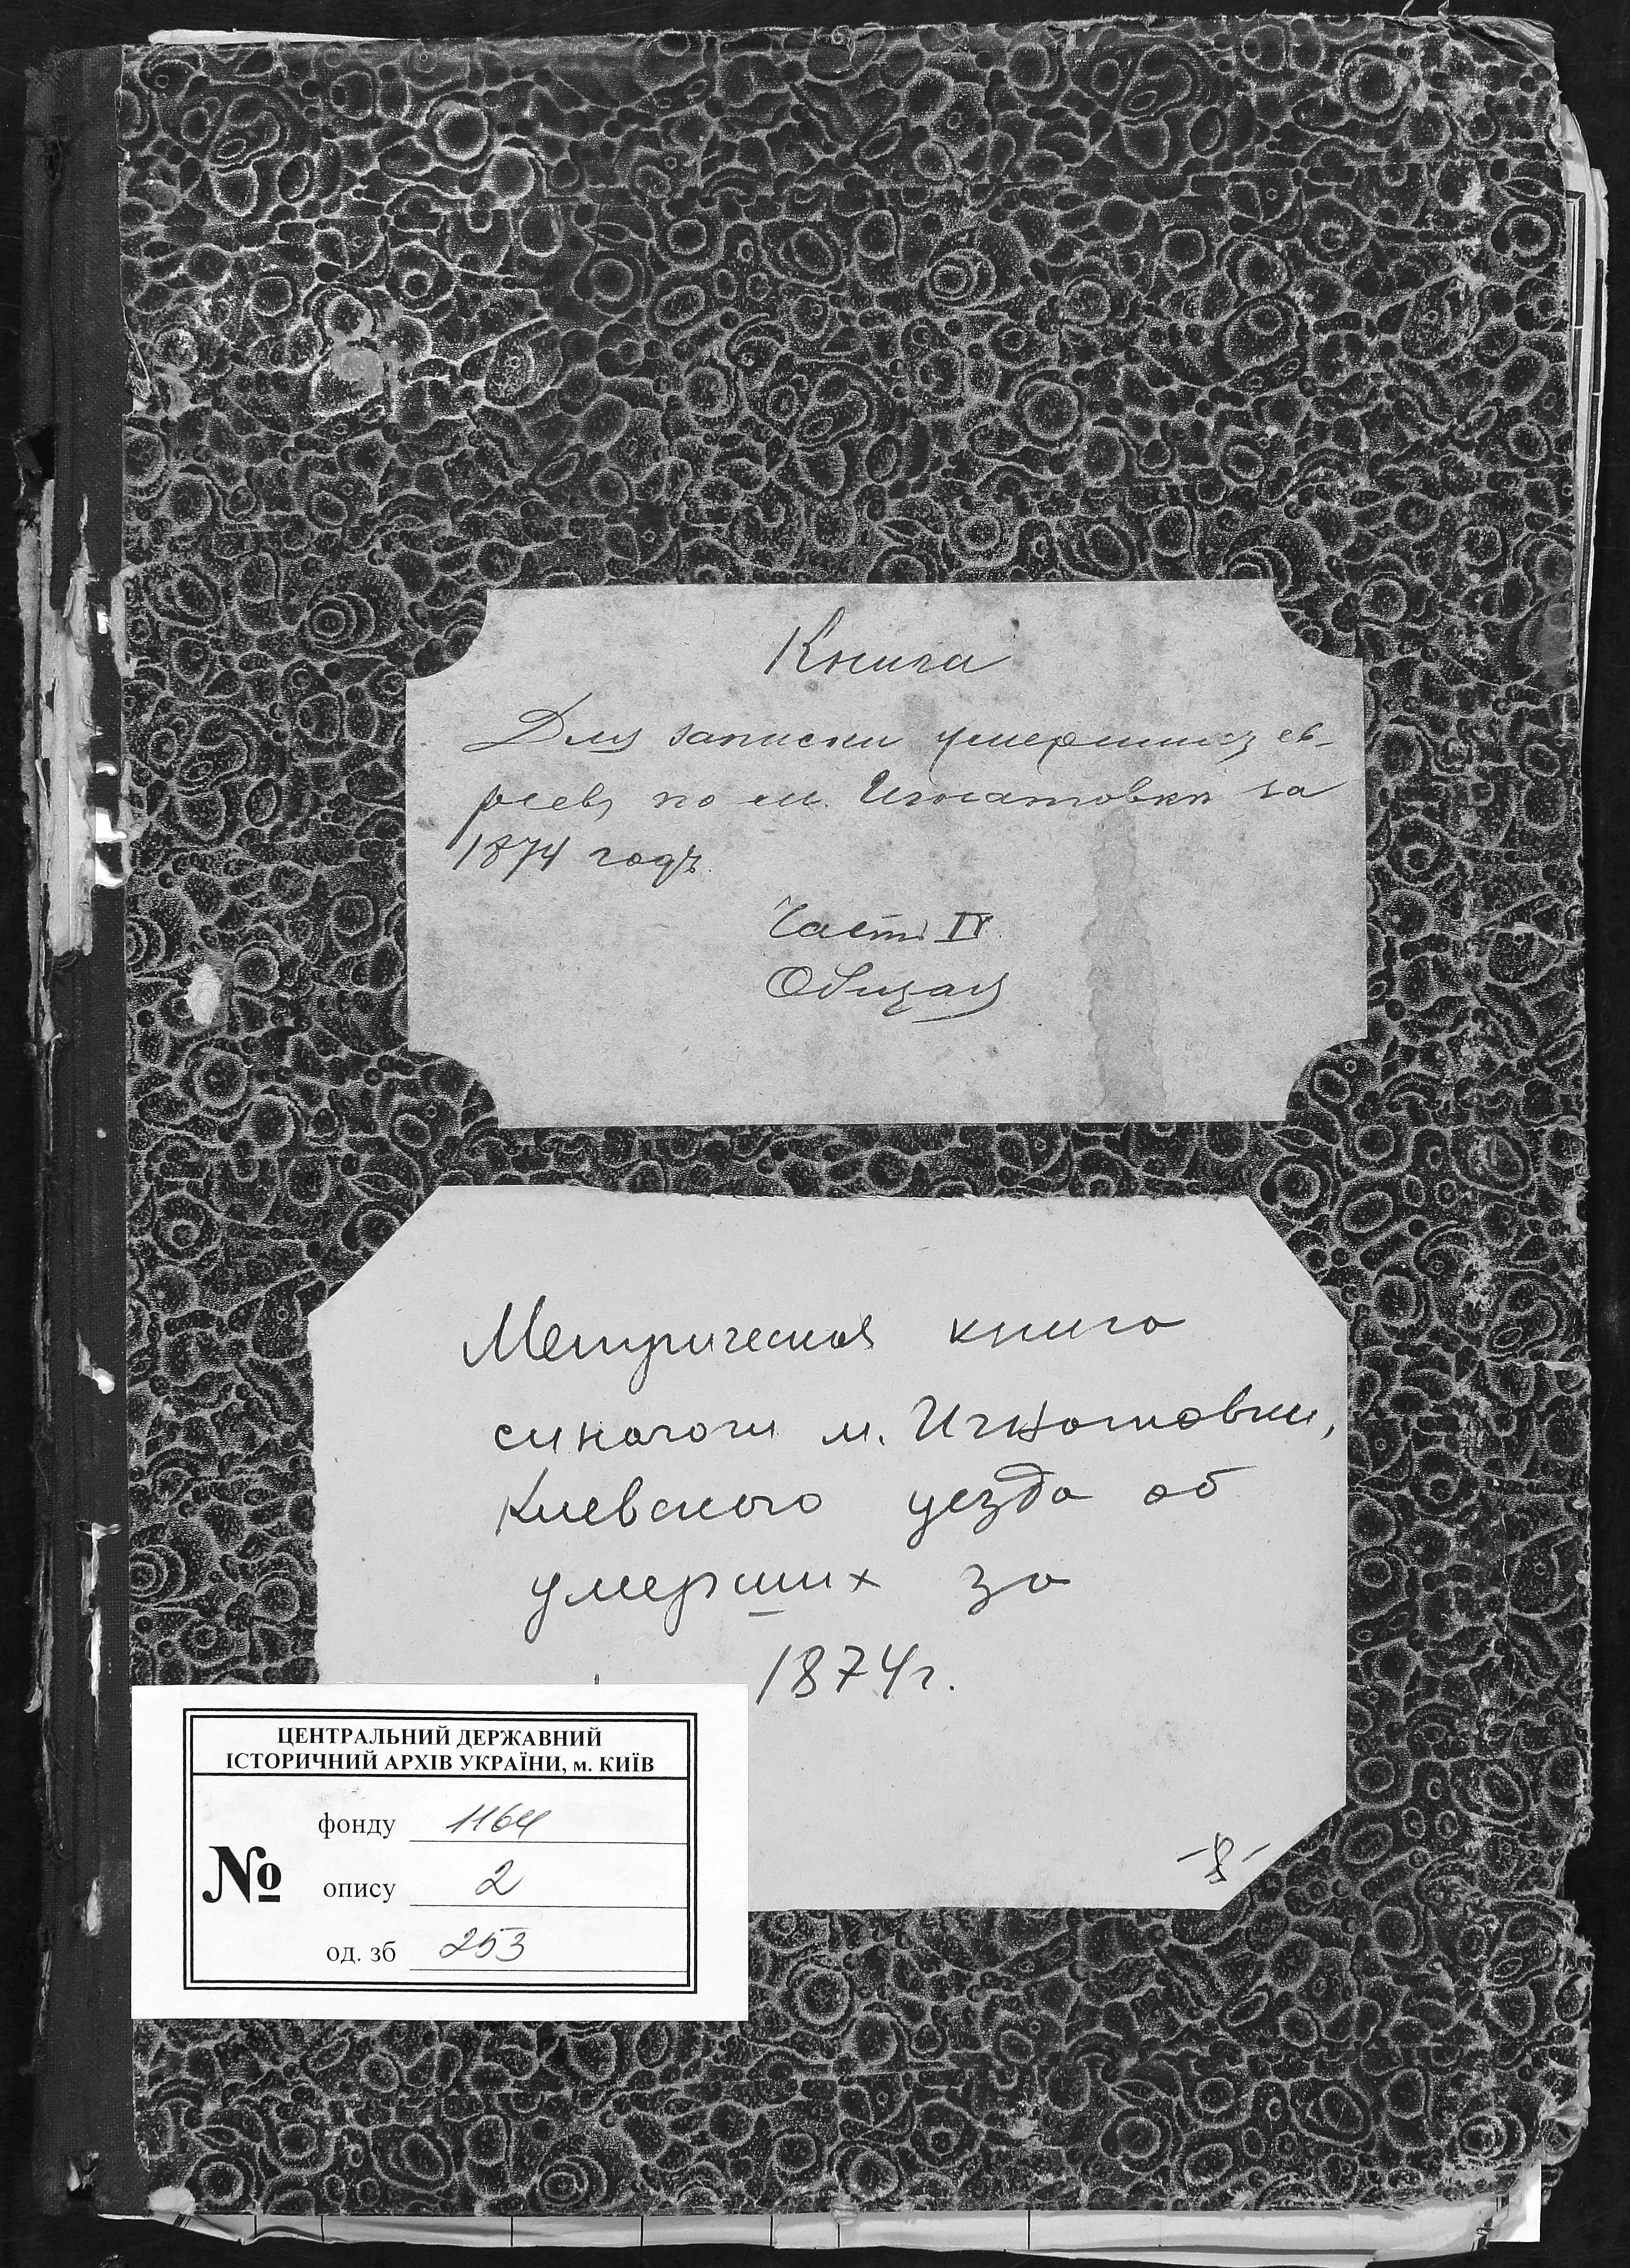 Книга
Для записки умершихъ ев-
реевъ по м. Игнатовкѣ за
1874 годъ.
Часть IV
Общая
Метрическая книга
синагоги м. Игнатовки,
Киевского уезда об
умерших за
1874г.
ЦЕНТРАЛЬНИЙ ДЕРЖАВНИЙ
ІСТОРИЧНИЙ АРХІВ УКРАЇНИ, м. КИЇВ
фонду 1164
№ опису 2
од. зб 253